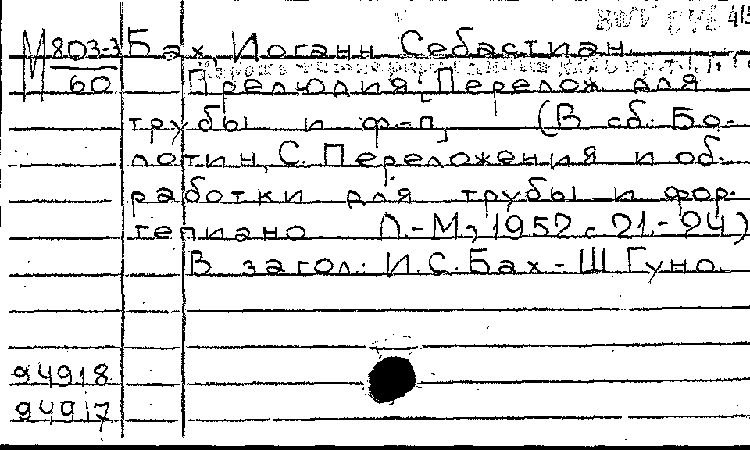 BWV 846
М 803-3 Бах, Иоганн Себастиан.
60 Прелюдия; Перелож. для
трубы и ф-п, (В сб: Бо-
лотин, С. Переложения и об-
работки для трубы и фор-
тепиано. Л.-М., 1952, с. 21-24)
В загол.: И.С.Бах - Ш.Гуно.
94918
94917